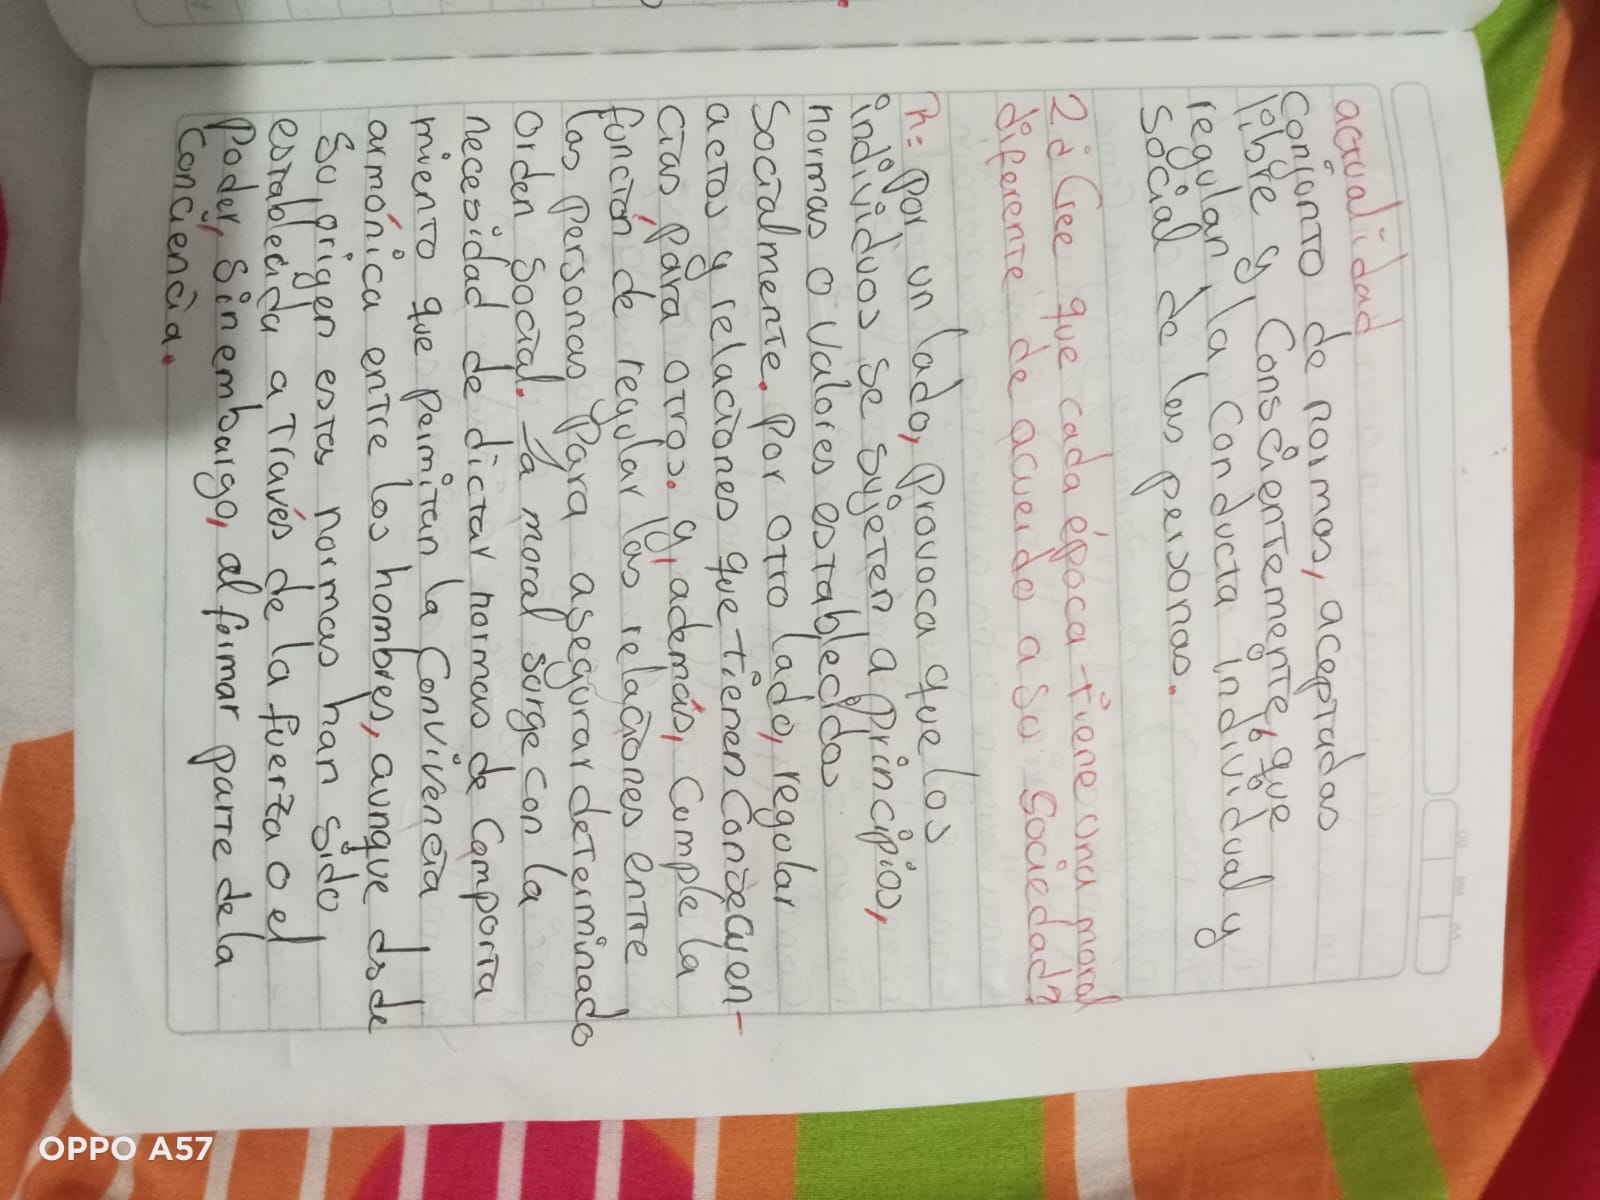 actualidad
Conjunto de normas, aceptadas
libre y Conscientemente, que
regulan la Conducta individual y
Social de las personas.
2¿ Cree que cada época tiene una moral
diferente de acuerdo a su Sociedad?
R= Por un lado, Provoca que los
individuos se sujeten a principios,
normas o valores establecidos
Socialmente. Por otro lado, regular
actos y relaciones que tienen Consecuen-
cias para otros. y, además, Cumple la
función de regular las relaciones entre
las personas Para asegurar determinado
Orden Social. La moral surge con la
necesidad de dictar normas de Comporta
miento que permitan la Convivencia
armónica entre los hombres, aunque dsde
Su origen estas normas han sido
establecida a Través de la fuerza o el
Poder, Sin embargo, al formar parte de la
Conciencia.
OPPO A57